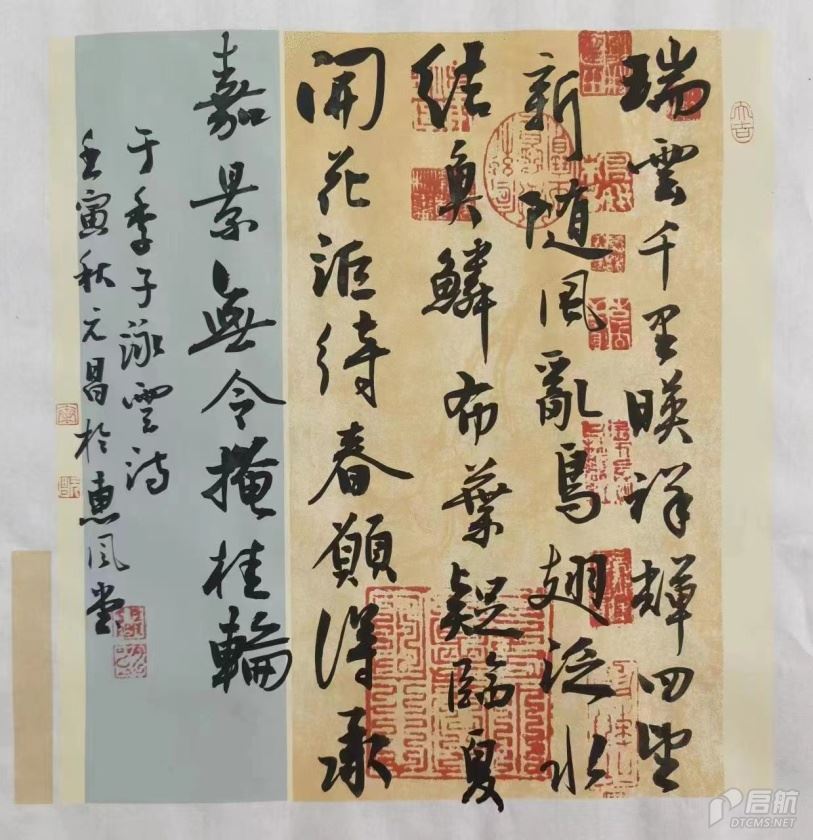 瑞雲千里暎祥輝四望
新随風亂鳥翅泛水
結魚鱗布葉疑臨夏
開花詎待春願得承
嘉景無令掩桂輪
于季子詠雲詩
壬寅秋元昌於惠風堂
大吉
启航
DTCMS.NET